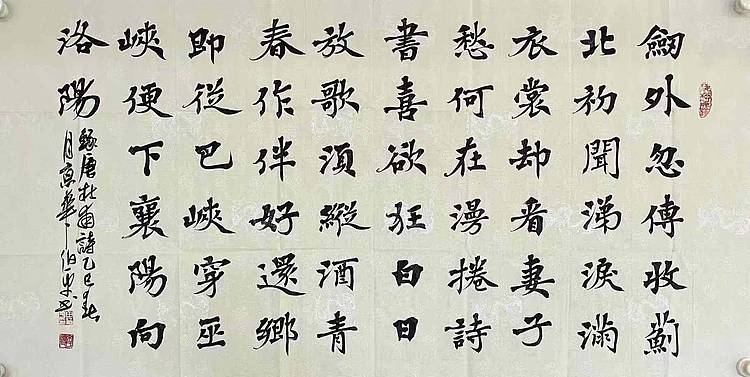 劒外忽傳收薊
北初聞涕淚滿
衣裳却看妻子
愁何在漫捲詩
書喜欲狂白日
放歌湏縱酒青
春作伴好還鄉
即從巴峽穿巫
峽便下襄陽向
洛陽
錄唐杜甫詩乙巳春
月京華